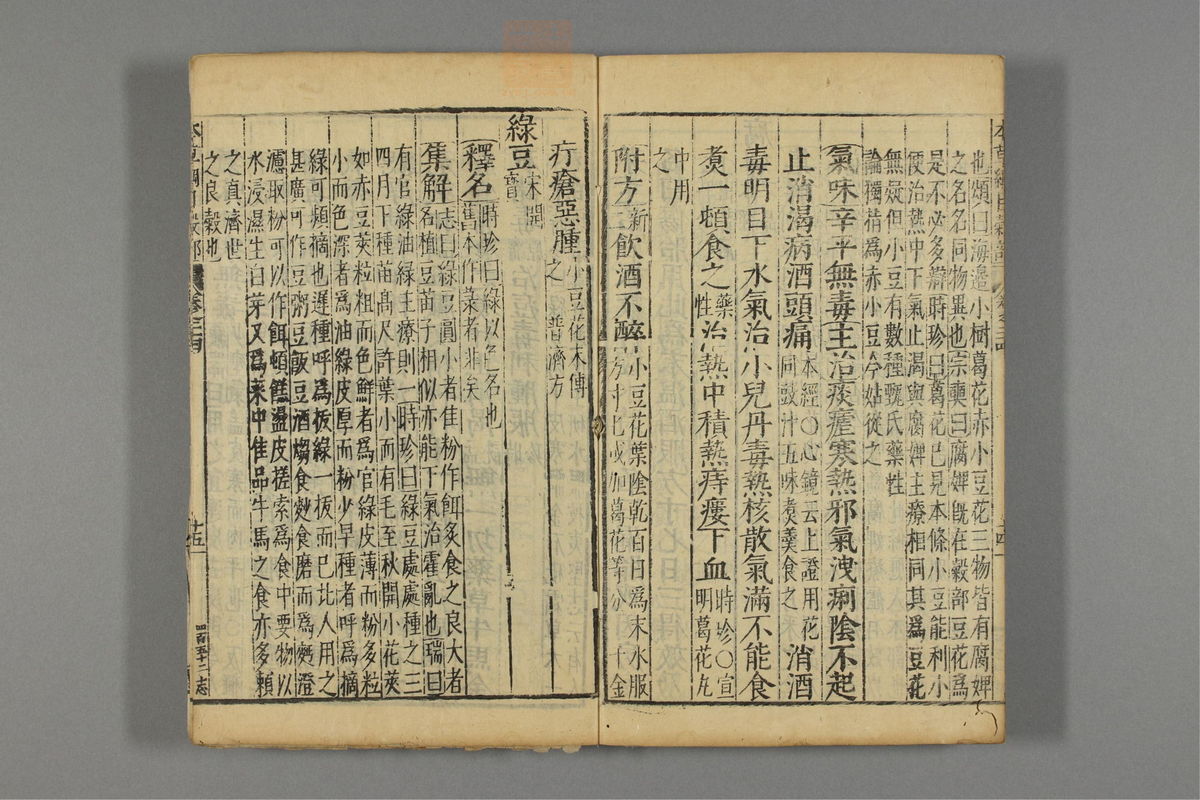 也頌曰海邉小樹葛花赤小豆花三物皆有腐婢
之名名同物異也宗奭曰腐婢既在穀部豆花爲
是不必多辯時珍曰葛花已見本條小豆能利小
便治熱中下氣止渴與腐婢主療相同其爲豆花
無疑但小豆有數種甄氏藥性
論獨指爲赤小豆今姑從之
氣味辛平無毒主治痎瘧寒熱邪氣洩痢陰不起
止消渴病酒頭痛本經○心鏡云上證用花同豉汁五味煮羹食之消酒
毒明目下水氣治小兒丹毒熱核散氣滿不能食
煮一頓食之藥性治熱中積熱痔瘻下血時珍○宣明葛花丸
中用
之
附方二新飲酒不醉小豆花葉陰乾百日爲末水服方寸匕或加葛花等分千金
疔瘡惡腫小豆花末傅之普濟方
綠豆宋開寶
釋名時珍曰綠以色名也舊本作菉者非矣
集解志曰綠豆圓小者佳粉作餌炙食之良大者名植豆苗子相似亦能下氣治霍亂也瑞曰
有官綠油綠主療則一時珍曰綠豆處處種之三
四月下種苗高尺許葉小而有毛至秋開小花莢
如赤豆莢粒粗而色鮮者爲官綠皮薄而粉多粒
小而色深者爲油綠皮厚而粉少早種者呼爲摘
綠可頻摘也遲種呼爲拔綠一拔而已北人用之
甚廣可作豆粥豆飯豆酒煼食麨食磨而爲麪澄
濾取粉可以作餌頓餻盪皮搓索爲食中要物以
水浸濕生白芽又爲菜中佳品牛馬之食亦多賴
之真濟世
之良穀也
卷之二十四
十五
四百五十二 志